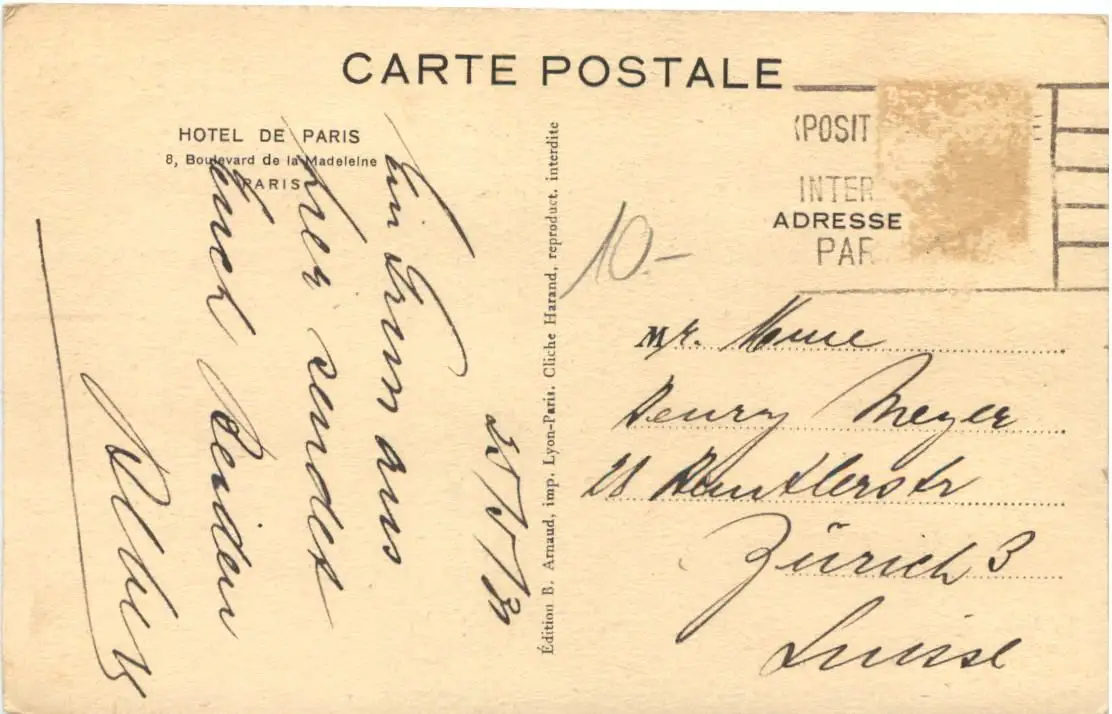 CARTE POSTALE
HOTEL DE PARIS
8, Boulevard de la Madeleine
PARIS
Ein Gruss aus
hier sendet
Euch Beiden
Albert
Édition B. Arnaud, imp. Lyon-Paris. Cliche Harand, reproduct. interdite
XPOSIT
INTER
PAR
ADRESSE
10.-
Mr. Mme
Henry Meyer
Zürich 3
Suisse